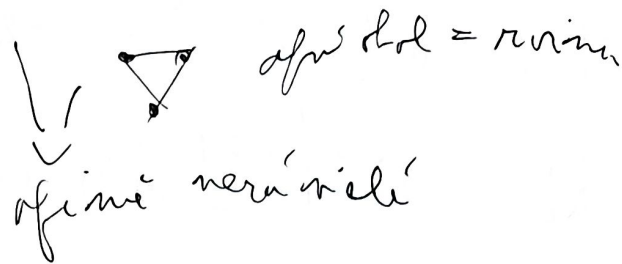 afiní obal = rovina
afinně nezávislé